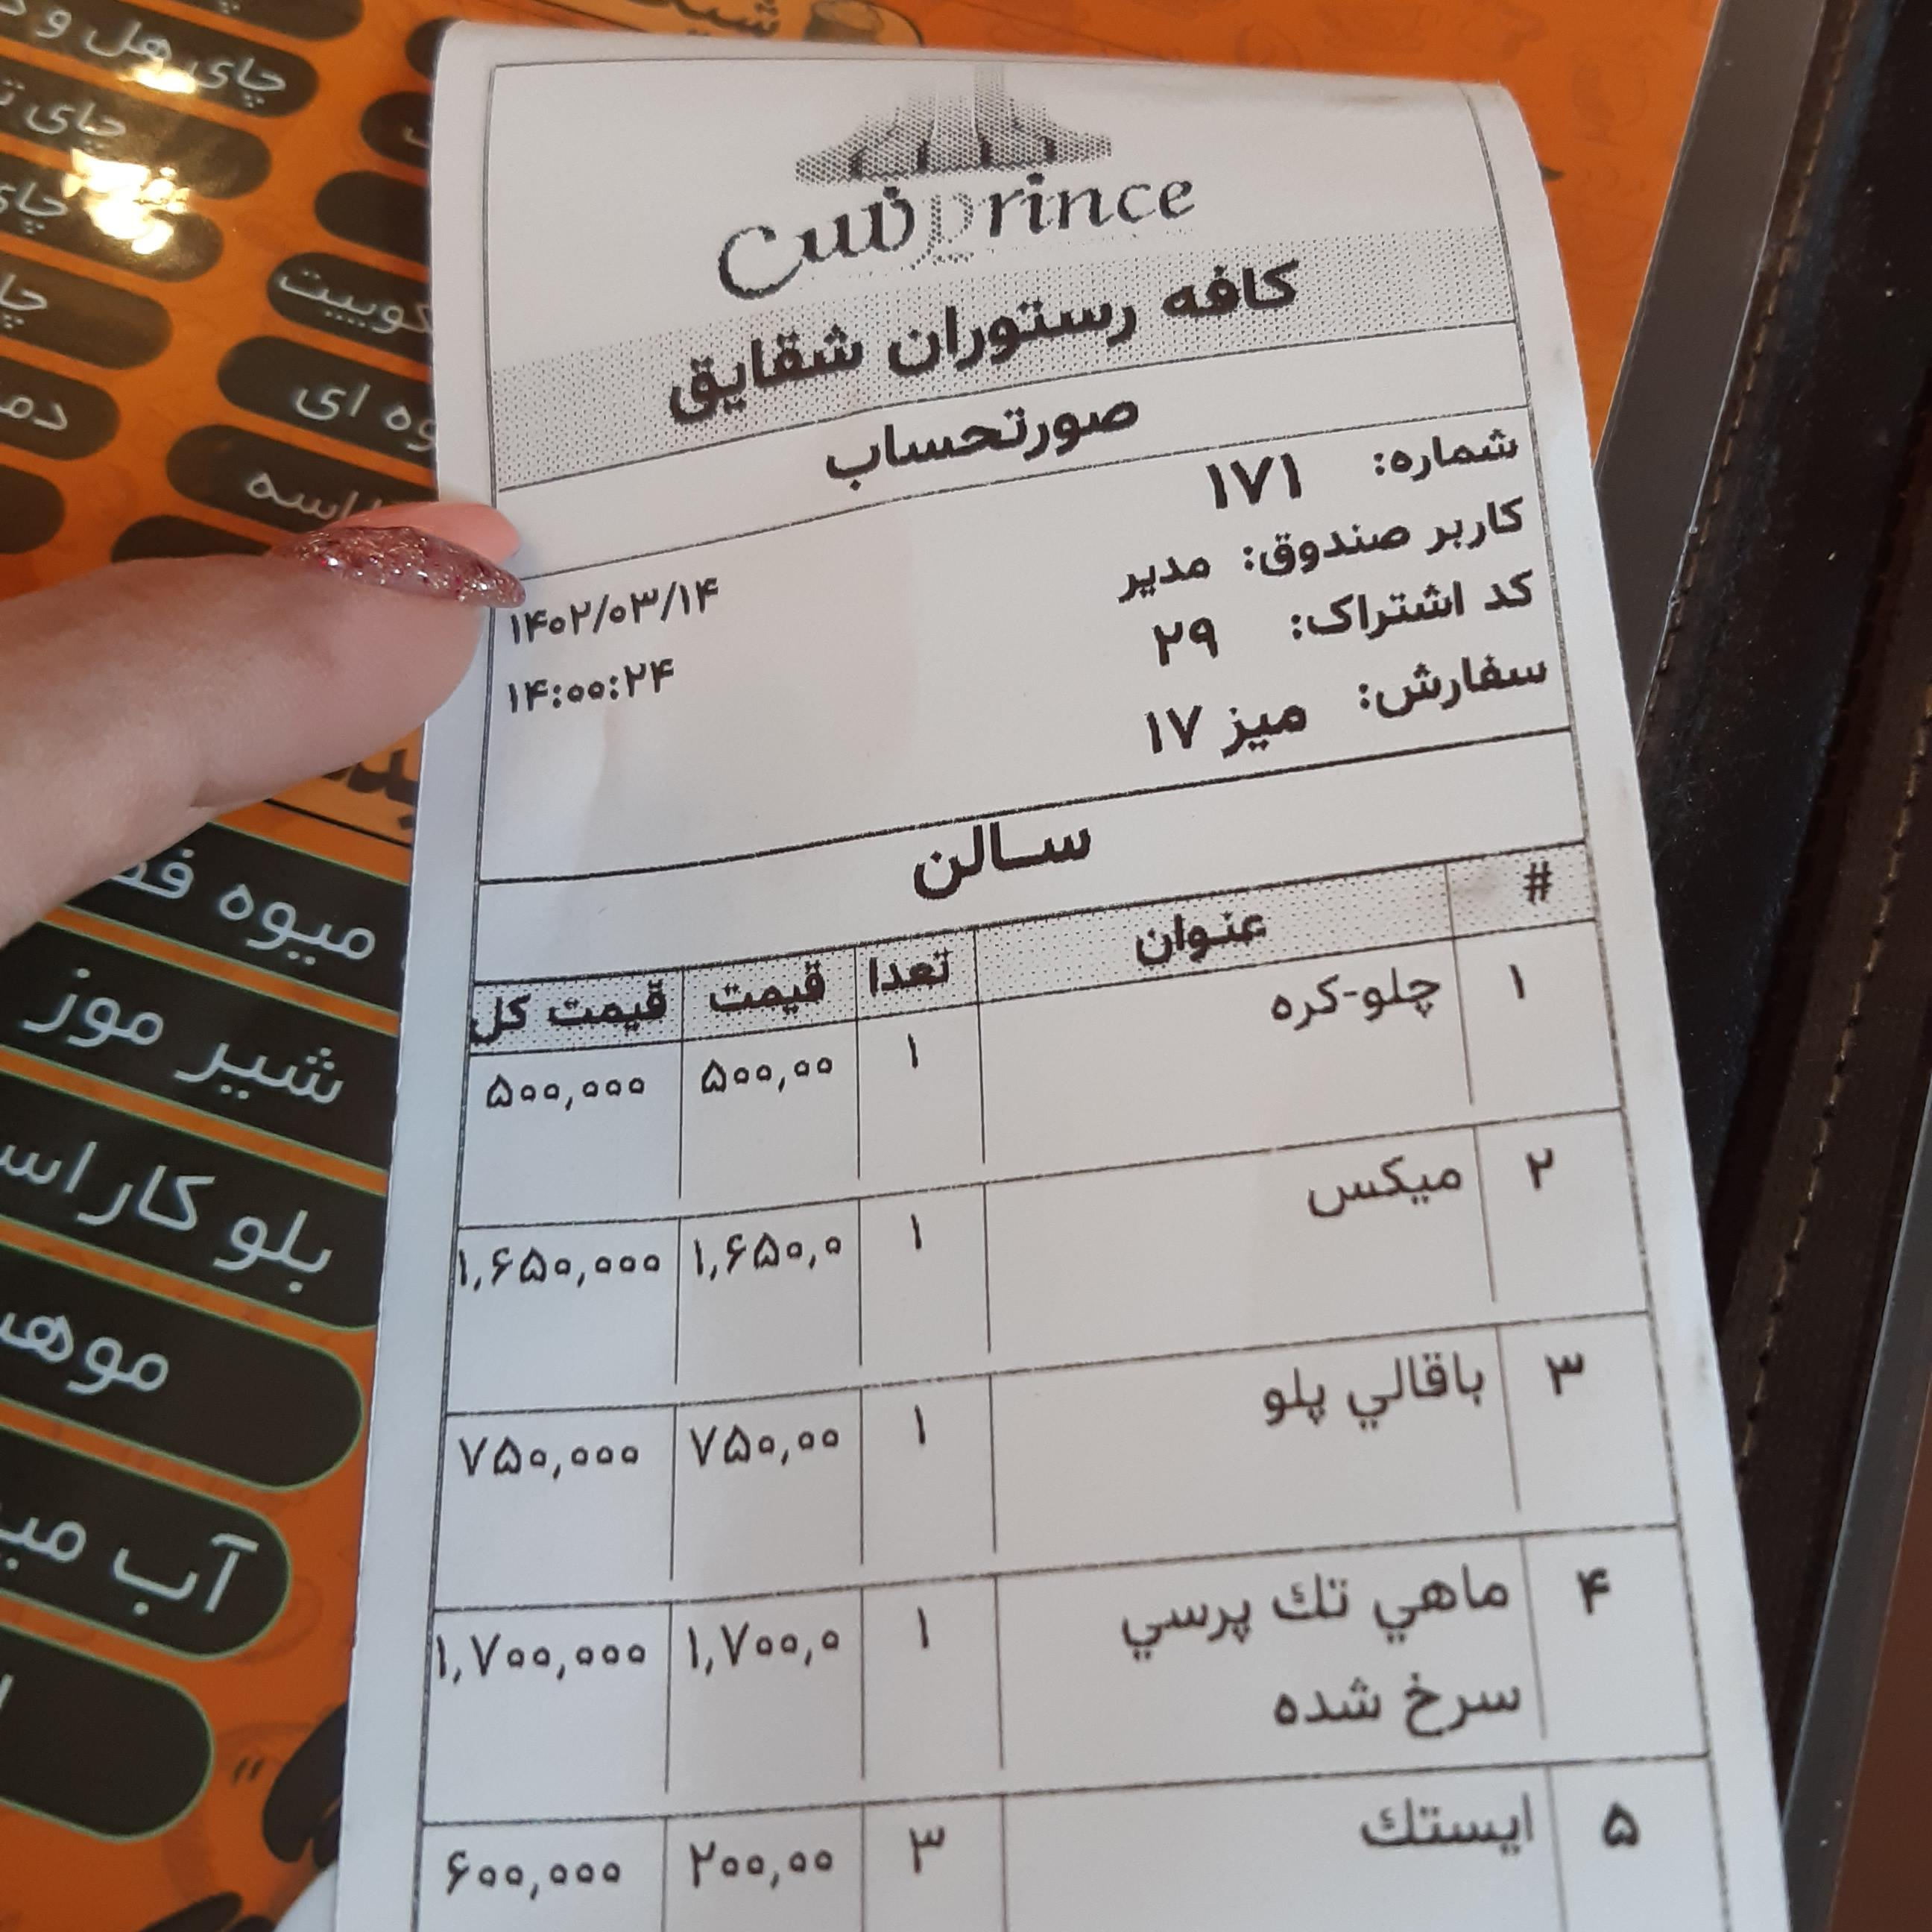 Cupprince
کافه رستوران شقایق
صورتحساب
شماره: ۱۷۱
کاربر صندوق: مدیر
۱۴۰۲/۰۳/۱۴
کد اشتراک: ۲۹
۱۴:۰۰:۲۴
سفارش: میز ۱۷
سـالن
# عنوان تعدا قیمت قیمت کل
۱ چلو-کره ۱ ۵۰۰,۰۰ ۵۰۰,۰۰۰
۲ میکس ۱ ۱,۶۵۰,۰ ۱,۶۵۰,۰۰۰
۳ باقالي پلو ۱ ۷۵۰,۰۰ ۷۵۰,۰۰۰
۴ ماهي تك پرسي ۱ ۱,۷۰۰,۰ ۱,۷۰۰,۰۰۰
سرخ شده
۵ ايستك ۳ ۲۰۰,۰۰ ۶۰۰,۰۰۰
چای هل و
چای
چای
وه ای
میوه
شیر موز
بلو کار
آب